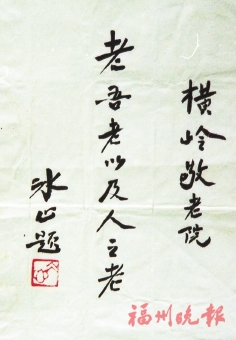 横岭敬老院
老吾老以及人之老
冰心题
福州晚报